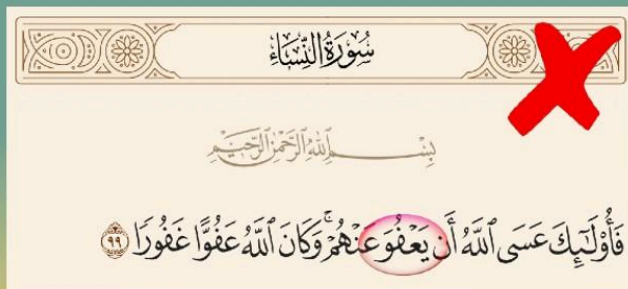 سُورَةُ النِّسَاءِ
بِسْمِ ٱللَّهِ ٱلرَّحْمَٰنِ ٱلرَّحِيمِ
فَأُو۟لَٰٓئِكَ عَسَى ٱللَّهُ أَن يَعْفُوَ عَنْهُمْ ۚ وَكَانَ ٱللَّهُ عَفُوًّا غَفُورًا ٩٩